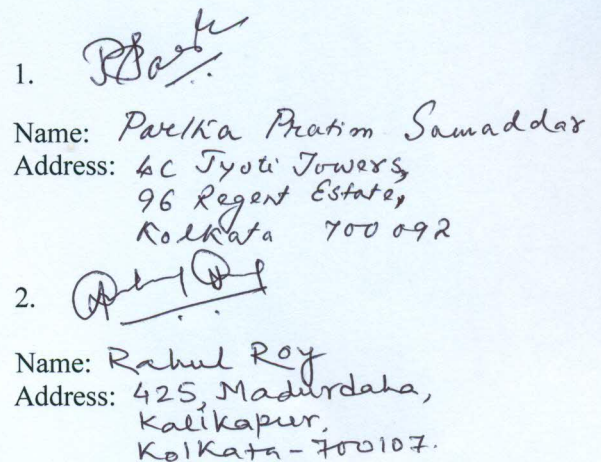 1.
Name: Partha Pratim Samaddar
Address: 4C Jyoti Towers,
96 Regent Estate,
Kolkata 700 092
2.
Name: Rahul Roy
Address: 425, Madurdaha,
Kalikapur,
Kolkata - 700107.